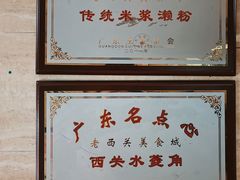 传统米浆濑粉
会
二〇一
广东名点
老西关美食城
西关水菱角